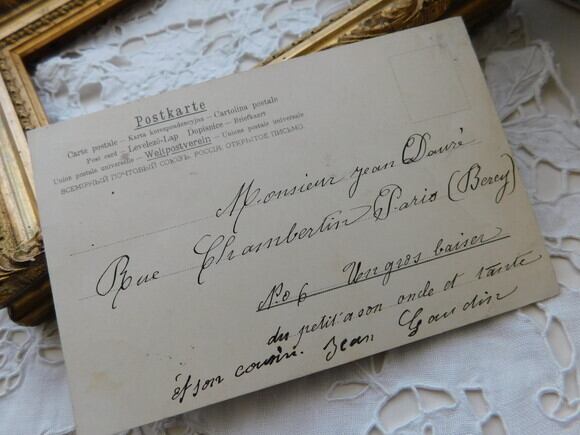 Postkarte
Carte postale — Karta korespondencyjna — Cartolina postale
Post card — Levelező-Lap Dopisnice — Briefkaart
Union postale universelle — Weltpostverein — Unione postale universale
ВСЕМІРНЫЙ ПОЧТОВЫЙ СОЮЗЪ. РОССІЯ. ОТКРЫТОЕ ПИСЬМО.
Monsieur Jean Dauré
Rue Chambertin Paris (Bercy)
No 6 Un gros baiser
du petit a son oncle et tante
et son cousin. Jean Gaudin